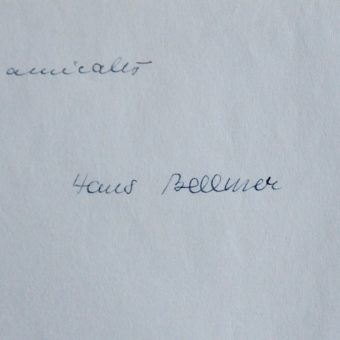 amicales
Hans Bellmer